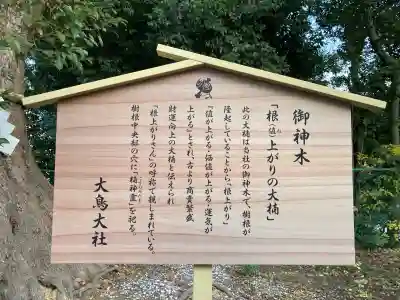 御神木
「根(値)上がりの大楠」
ね
此の大楠は当社の御神木で、樹根が
隆起していることから「根上がり」
「値が上がる・価値が上がる・運気が
上がる」とされ、古より商賣繁盛
財運向上の大楠と伝えられ
「根上がりさん」の呼称で親しまれている。
樹根中央部の穴に「楠神霊」を祀る。
大鳥大社